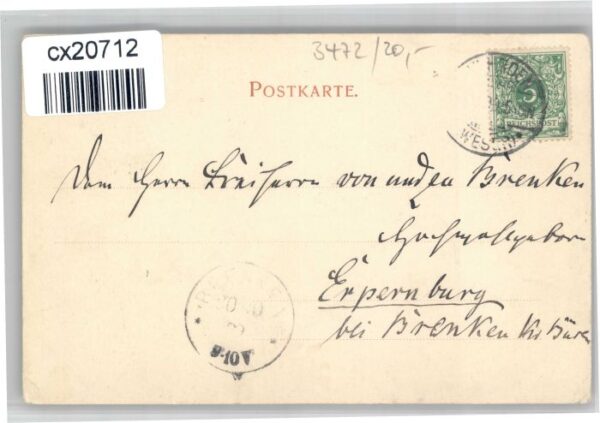 cx20712
3472/20,-
POSTKARTE.
5
REICHSPOST
WESTF.
Dem Herrn Freiherrn von und zu Brenken
Hochwohlgeboren
Erpernburg
bei Brenken Kr. Büren
9-10V